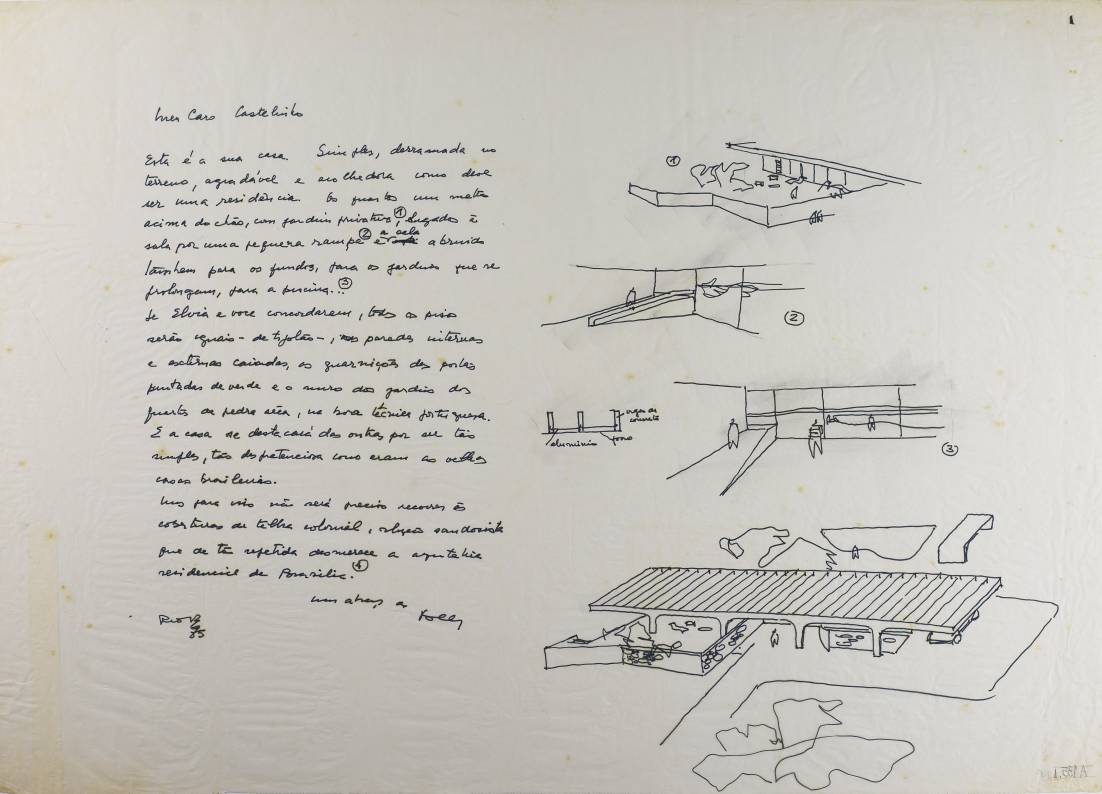 Meu Caro Castelinho
Esta é a sua casa. Simples, derramada no
terreno, agradável e acolhedora como deve
ser uma residência. Os quartos um metro
acima do chão, com jardins privativos ①, ligados à
sala por uma pequena rampa ② e a sala abrindo
também para os fundos, para os jardins que se
prolongam, para a piscina... ③
Se Elvia e voce concordarem, todos os pisos
serão iguais - de tijolão -, as paredes internas
e externas caiadas, as guarnições das portas
pintadas de verde e o muro dos jardins dos
quartos de pedra sêca, na boa técnica portuguesa.
E a casa se destacará das outras por ser tão
simples, tão despretenciosa como eram as velhas
casas brasileiras.
Mas para isso não será preciso recorrer às
coberturas de telha colonial, solução saudosista
que de tão repetida desmerece a arquitetura
residencial de Brasília. ④
um abraço do
Rio
85
①
②
vigas de
concreto
aluminio forro
③
1